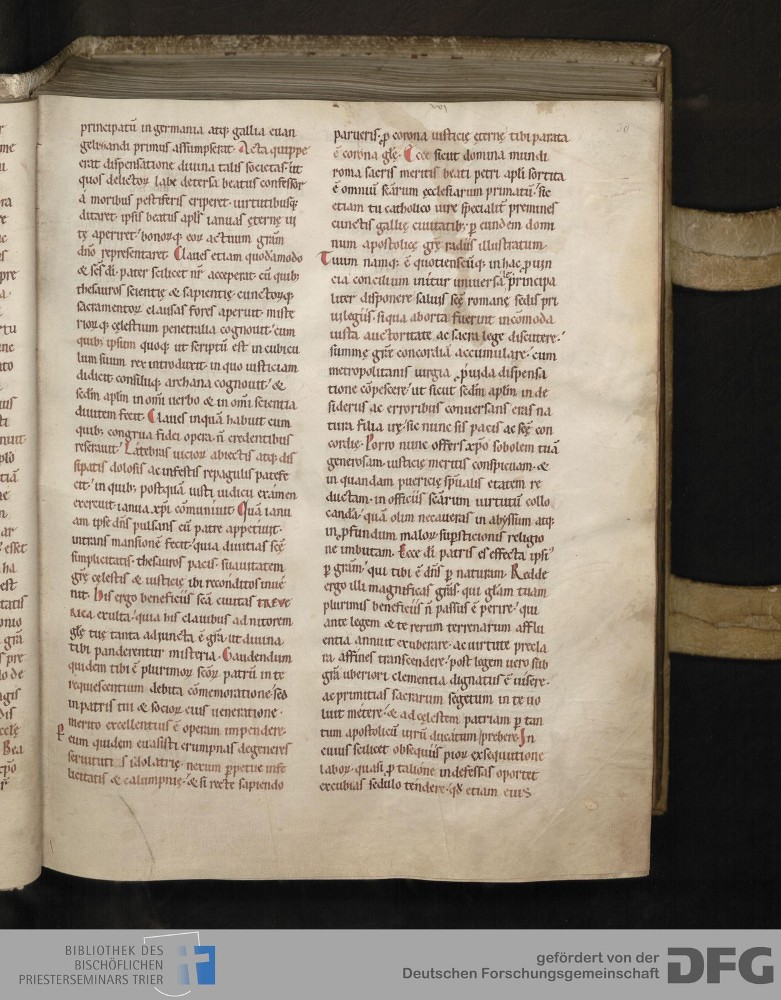 principatū in germania atq; gallia euan
gelizandi primus assumpserat. Acta quippe
erat dispensatione diuina talis societas. ut
quos delictoꝝ labe detersa beatus confessor
a moribus pestiferis eriperet. uirtutibusq;
ditaret. ipsis beatus apls ianuas ęternę ui
tę aperiret. bonoꝝq; eoꝝ actuum grām
dn̄o representaret. Claues etiam quodāmodo
& sēs di pater scilicet nr̄ acceperat. cū quib;
thesauros scientię & sapientię. cunctoꝝq;
sacramentoꝝ clausas fores aperuit. miste
rioꝝq; cęlestium penetralia cognouit. cum
quib; ipsum quoq; ut scriptū est in cubicu
lum suum rex introduxit. in quo iusticiam
didicit. consiliiq; archana cognouit. &
sedm aplm in om̄i uerbo & in om̄i scientia
diuitem fecit. Claues inquā habuit cum
quib; congrua fidei opera n̄ credentibus
reserauit. Latebras uicioꝝ abiectis atq; dis
sipatis dolosis ac infestis repagulis patefe
cit. in quib; postquā iusti iudicii examen
exercuit. ianua xp̄i cōmuniuit. Quā ianu
am ipse dn̄s pulsans cū patre appetiuit.
intrans mansionē fecit. quia diuitias scę
simplicitatis. thesauros pacis. suauitatem
grę cęlestis & iusticię ibi reconditos inue
nit. His ergo beneficiis scā ciuitas treue
rica exulta. quia his clauibus ad nitorem
glę tuę tanta adiuncta ē grā. ut diuina
tibi panderentur misteria. Gaudendum
quidem tibi ē plurimoꝝ scōꝝ patrū in te
requiescentium debita cōmemoratione. sed
in patris tui & socioꝝ eius ueneratione.
merito excellentius ē operam impendere.
P cum quidem euasisti erumpnas degeneres
seruitutis idolatrię. nexum ꝑpetue infe
licitatis & calumpnię. & si recte sapiendo
30
parueris. ꝓ corona iusticię ęternę tibi parata
ē corona glę. Ecce sicut domina mundi
roma sacris meritis beati petri apli sortita
ē omniū scārum ęcclesiarum primatū. sic
etiam tu catholico iure specialit premines
cunctis gallię ciuitatib; p eundem domi
num apostolicę grę radiis illustratum.
Tuum namq; ē quotienscūq; in hac prouin
cia concilium initur uniuersale. principa
liter disponere saluis scę romanę sedis pri
uilegiis. siqua aborta fuerint incōmoda
iusta auctoritate ac sacra lege discutere.
summę grę concordiā accumulare. cum
metropolitanis uirgia ꝓuida dispensa
tione cōpescere. ut sicut sedm aplm in de
siderus ac erroribus conuersans eras na
tura filia irę. sic nunc sis pacis ac scę con
cordię. Porro nunc offers xp̄o sobolem tuā
generosam. iusticię meritis conspicuam. &
in quandam puericię spūalis etatem re
ductam. in officiis scārum uirtutū collo
canda. quā olim necaueras in abyssum atq;
in ꝓfundum maloꝝ supsticionis religio
ne imbutam. Ecce di patris es effecta ipsi'
p grām. qui tibi ē dn̄s p naturam. Redde
ergo illi magnificas grās. qui glam tuam
plurimis beneficiis n̄ passus ē perire. qui
ante legem & te rerum terrenarum afflu
entia annuit exuberare. ac uirtute precla
ra affines transcendere. post legem uero sub
grā uberiori clementia dignatus ē uisere.
ac primitias sacrarum segetum in te uo
luit metere. & ad cęlestem patriam p tan
tum apostolicū uirū ducatum prebere. In
cuius scilicet obsequiis pioꝝ exsequutione
laboꝝ. quasi ꝓ talione indefessas oportet
excubias sedulo tendere. qđ etiam eius
BIBLIOTHEK DES
BISCHÖFLICHEN
PRIESTERSEMINARS TRIER
gefördert von der
Deutschen Forschungsgemeinschaft
DFG